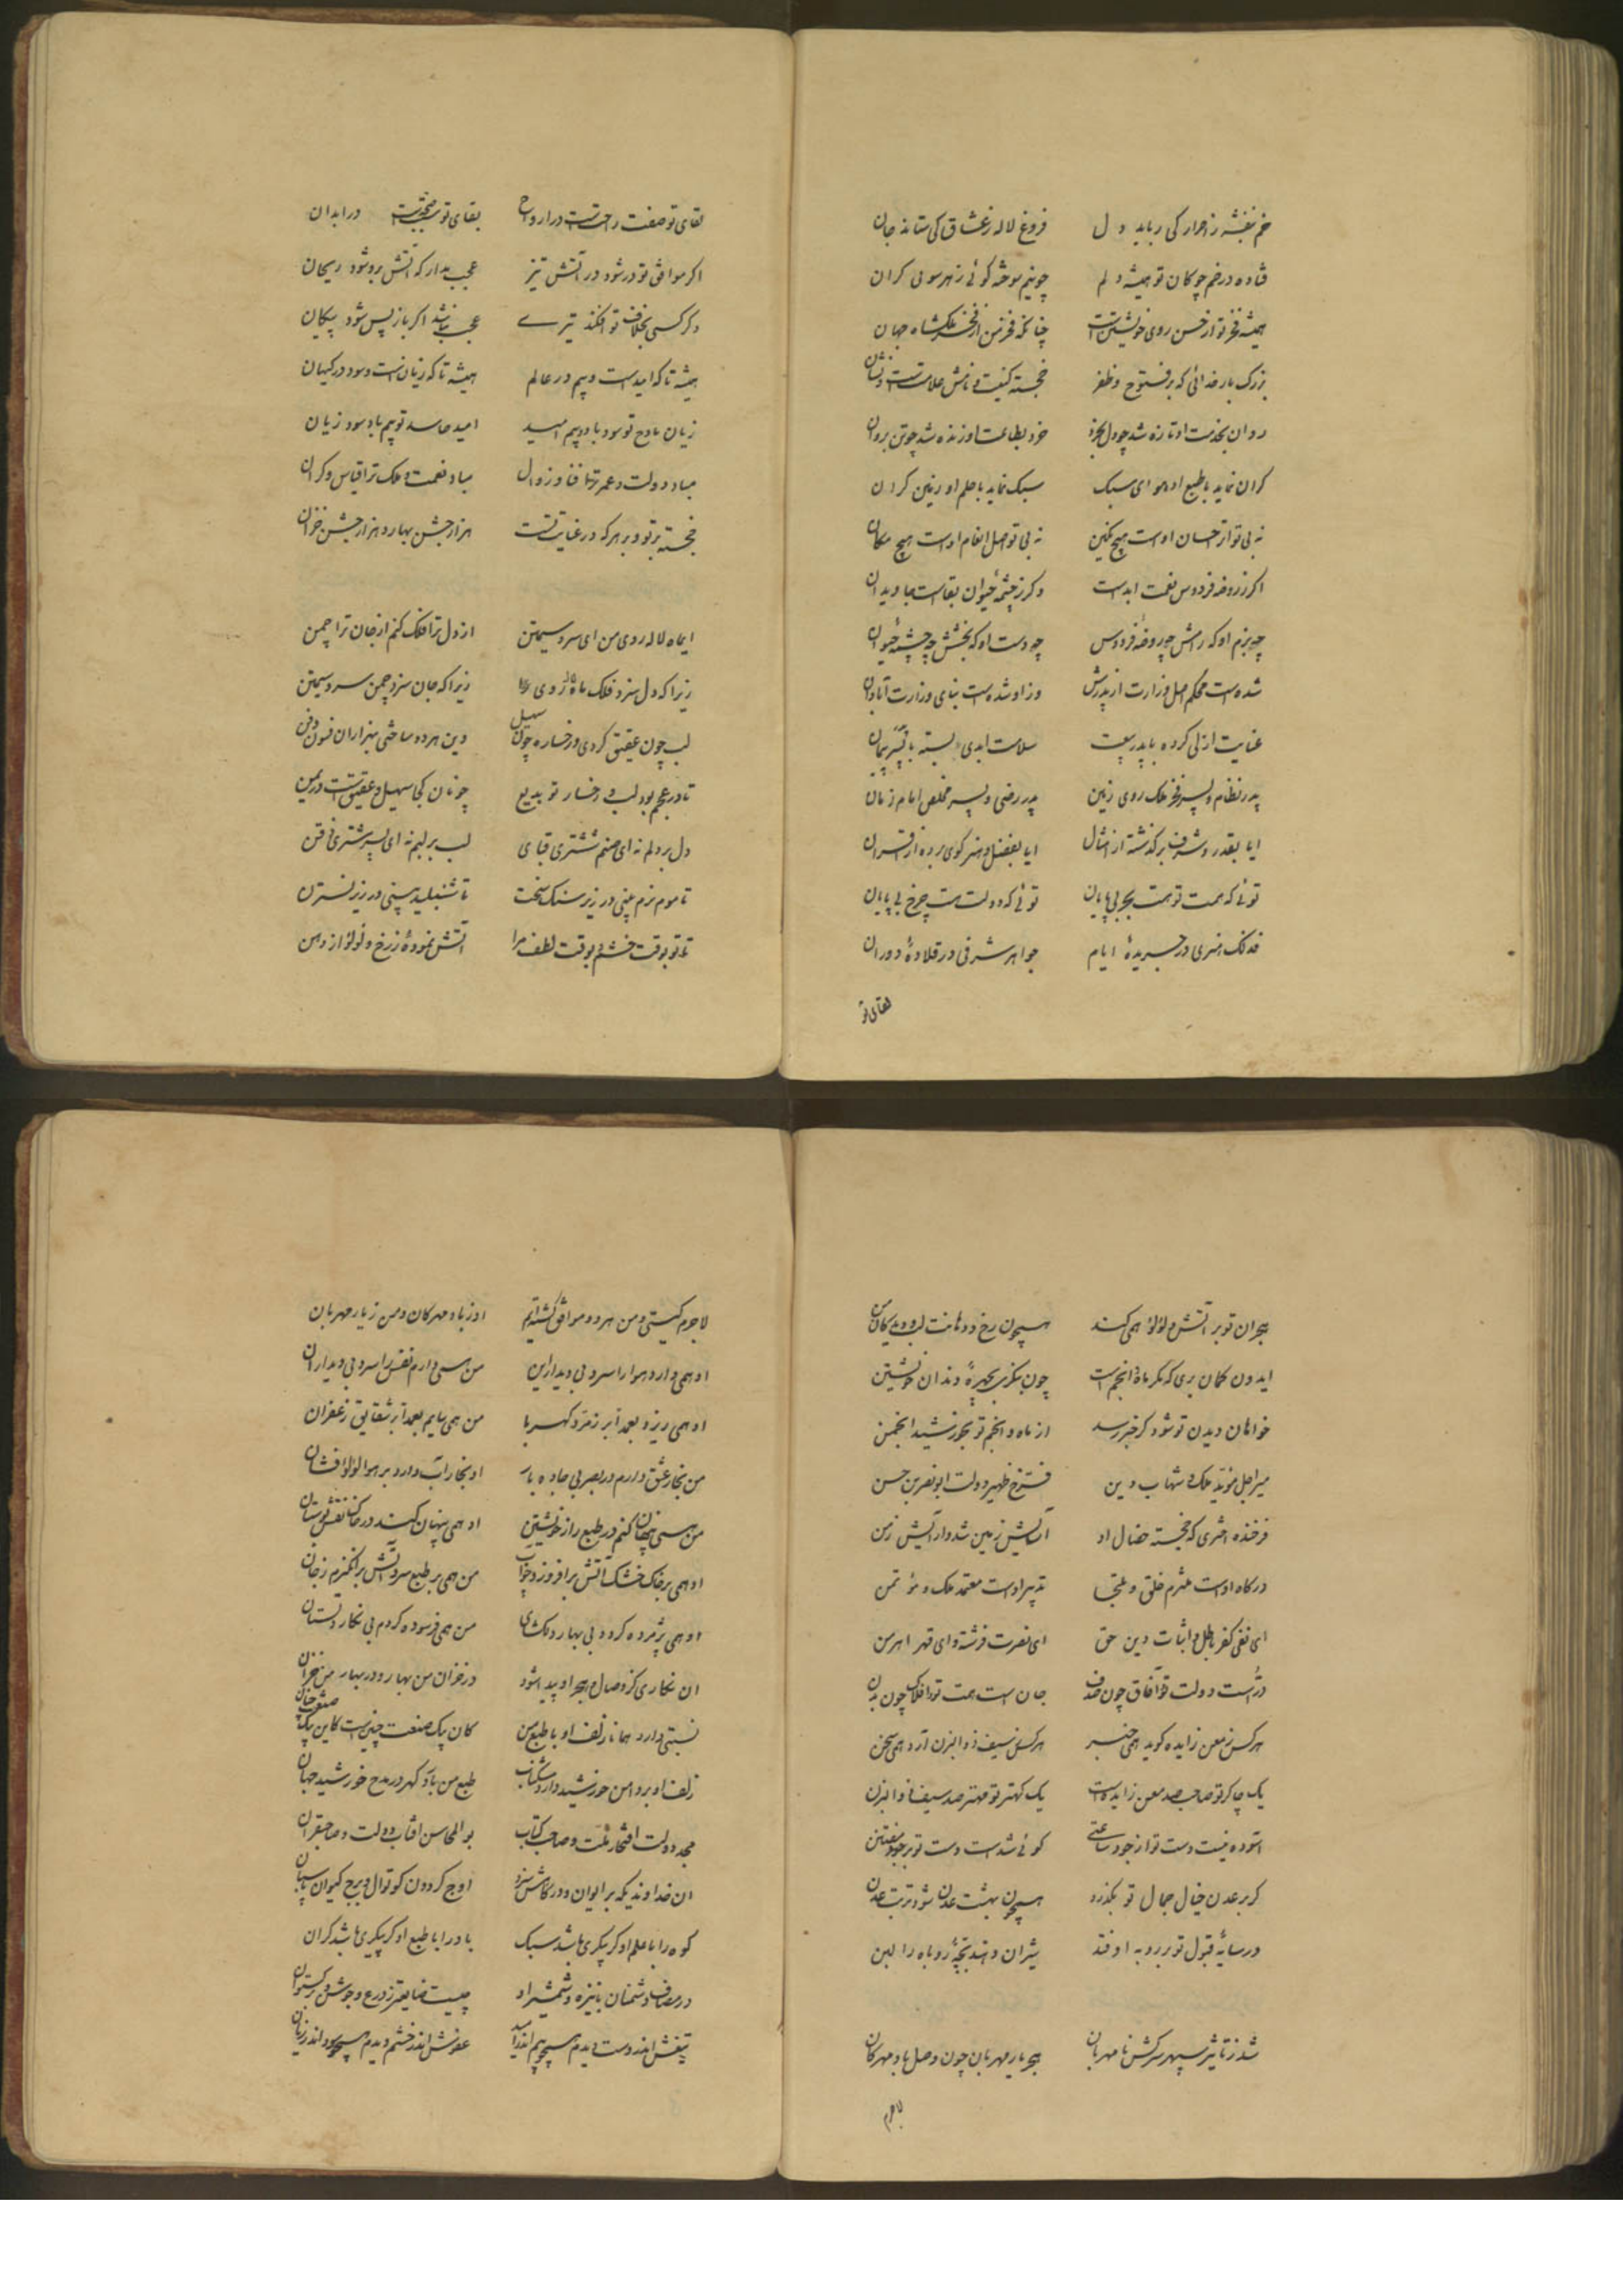 خم بنفشه ز احرار کی رباید دل فروغ لاله ز عشاق کی ستاند جان
فتاده در خم چوکان تو همیشه دلم چو نیم سوخته کوئی ز هر سوئی کران
همیشه فخر تو از حسن روی خویشتن است چنانکه فخر من از فخر ملک شاه جهان
بزرک بار خدائی که بر فتوح و ظفر خجسته کنیت و نامش علامتست و نشان
روان بخدمت او تازه شد چو دل بخرد خرد بطاعت او زنده شد چو تن بروان
کران نماید با طبع او هوای سبک سبک نماید با حلم او زمین کران
نه بی تواتر احسان اوست هیچ مکین نه بی تواصل انعام اوست هیچ مکان
اکر ز روضه فردوس نعمت ابدست وکر ز چشمه حیوان بقاست جاویدان
چه بزم او که رامش چه روضه فردوس چه دست او که بخشش چه چشمه حیوان
شده است محکم اصل وزارت از پدرش وزاو شده است بنای وزارت آبادان
عنایت ازلی کرده با پدر بیعت سلامت ابدی بسته با پسر پیمان
پدر نظام و پسر فخر ملک روی زمین پدر رضی و پسر مخلص امام زمان
ایا بقدر و شرف برکذشته از امثال ایا بفضل و هنر کوی برده از اقران
توئی که همت تو هست بحر بی پایان توئی که دولت تست چرخ بی پایان
فذلک هنری در جریدهٔ ایام جواهر شرفی در قلادهٔ دوران
لقای تو
لقای تو صفت راحتست در ارواح بقای تو سبب صحتست در ابدان
اکر موافق تو در شود در آتش تیز عجب مدار که آتش برو شود ریحان
وکر کسی بخلاف تو افکند تیرے عجب نباشد اکر باز پس شود پیکان
همیشه تا که امیدست و بیم در عالم همیشه تا که زیانست و سود در کیهان
زیان مادح تو سود باد و بیم امید امید حاسد تو بیم باد و سود زیان
مباد دولت و عمر ترا فنا و زوال مباد نعمت و ملک ترا قیاس و کران
خجسته بر تو و بر هر که در عنایت تست هزار جشن بهار و هزار جشن خزان
ای ماه لاله روی من ای سرو سیمتن از دل ترا فلک کنم از جان ترا چمن
زیرا که دل سزد فلک ماه لاله روی زیرا که جان سزد چمن سرو سیمتن
لب چون عقیق کردی و رخساره چون سهیل وین هر دو ساختی بهزاران فسون و فن
تا در عجم بود لب و رخسار تو بدیع چونان کجا سهیل و عقیق است در یمن
دل بر دلم نه ای صنم ششتری قبای لب بر لبم نه ای پسر مشتری ذقن
تا موم نرم بینی در زیر سنک سخت تا شنبلید بینی در زیر نسترن
تا تو بوقت خشم و بوقت لطف مرا آتش نمودهٔ ز رخ و لولو از دهن
هجران تو بر آتش و لولو همی کند همچون رخ و دهانت لب و دیدکان من
ایدون کمان بری که مکر ماه و انجم است چون بنکری بچهره و دندان خویشتن
خواهان دیدن تو شود کر خبر رسد از ماه و انجم تو بخورشید انجمن
میر اجل مؤید ملک و شهاب دین فرخ ظهیر دولت ابونصر بن حسن
فرخنده اختری که خجسته خصال او آسایش زمین شد و آرایش زمن
درکاه اوست ملتزم خلق و ملتجا تدبیر اوست معتمد ملک و مؤتمن
ای نفی کفر باطل و اثبات دین حق ای نصرت فرشته و ای قهر اهرمن
درّست دولت تو و آفاق چون صدف جان است همت تو و افلاک چون بدن
هر کس ز معن زایده کوید همی خبر هر کس ز سیف ذوالیزن آرد همی سخن
یک چاکر تو صاحب صد معن زایده است یک کهتر تو مهتر صد سیف ذوالیزن
آسوده نیست دست تو از جود ساعتی کوئی شدست دست تو بر جود مفتتن
کر بر عدن خیال جمال تو بکذرد همچون بهشت عدن شود تربت عدن
در سایهٔ قبول تو بر روبه اوفتد شیران دهند بچهٔ روباه را لبن
شد ز تاثیر سپهر سرکش نامهربان هجر یار مهربان چون وصل باد مهرکان
لاجرم
لاجرم کیتی و من هر دو موافق کشته‌ایم او ز باد مهرکان و من ز یار مهربان
او همی دارد هوا را سرد بی دیدار این من همی دارم نفس را سرد بی دیدار آن
او همی ریزد بعمدا بر زمرد کهربا من همی سایم بعمدا بر شقایق زعفران
من بخار عشق دارم در بصر بی‌جاده بار او بخار آب دارد بر هوا لولوافشان
من همی پنهان کنم در طبع راز خویشتن او همی پنهان کند در خاک نقش بوستان
او همی بر خاک خشک آتش برافروزد ز آب من همی بر طبع سرد آتش برانکیزم ز جان
او همی پژمرده کردد بی بهار دلکشای من همی فرسوده کردم بی نکار دلستان
آن نکاری کز وصال و هجر او پیدا شود در خزان من بهار و در بهار من خزان
نسبتی دارد همانا زلف او با طبع من کان یک صنعت چنینست کاین یک صنعت چنان
زلف او بر دامن خورشید دارد مشک ناب طبع من بارد کهر در مدح خورشید جهان
مجد دولت افتخار ملت و صاحب کتاب بوالمحاسن آفتاب دولت و صاحبقران
آن خداوندیکه بر ایوان و درکاهش سزد اوج کردون کوتوال و برج کیوان پاسبان
کوه را با حلم او کر بنکری باشد سبک باد را با طبع او کر بنکری باشد کران
در مصاف دشمنان با نیزه و شمشیر او چیست ضایع‌تر ز درع و جوشن و برکستوان
تیغش اندر دست دیدم همچو بیم اندر امید عفوش اندر خشم دیدم همچو سود اندر زیان